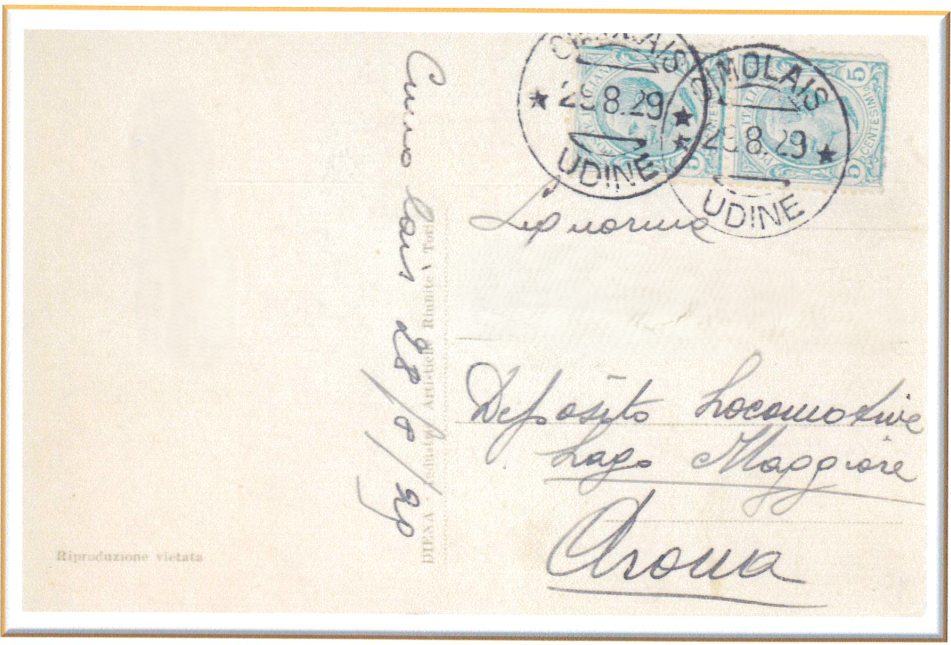 Cimolais 28/8/29
CIMOLAIS
29.8.29
UDINE
CIMOLAIS
29.8.29
UDINE
5 CENTESIMI 5
Signorina
Deposito Locomotive
Lago Maggiore
Arona
DIENA Industrie Artistiche Riunite Torino
Riproduzione vietata